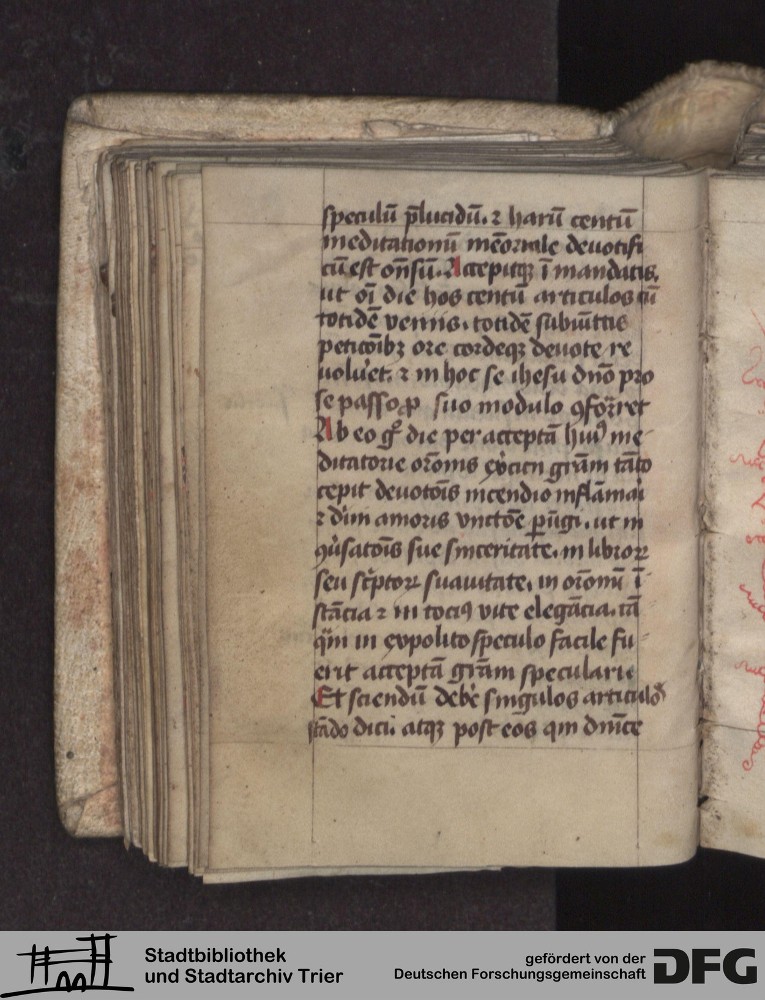 speculū p̄lucidū. ⁊ harū centū
meditationū mēoriale deuotiſſi
cū est oñſū. Accepitqꝫ ī mandatis.
ut oī die hos centū articulos cū
totidē veniis. totidē ſubiūctis
peticōībꝫ ore cordeqꝫ deuote re
uolu̓et. ⁊ in hoc se ihesu dn̄o pro
se passo ꝓ suo modulo ꝯfor̄ret
Ab eo gͦ die per acceptā huiꝰ me
ditatorie or̄onis gr̄am tāto
cepit deuotōis incendio inflāmari
⁊ diuī amoris vnctōe ꝑūgi. ut in
ꝯu̓satōis sue sinceritate. in libroꝝ
seu sc̓ptoꝝ suauitate. in or̄onū ī
stācia ⁊ in tociꝰ vite elegācia. tā
qͣm in expolito speculo facile fu
erit acceptā gr̄am speculari
Et sciendū debe̓ singulos articulos
stādo dici. atqꝫ post eos qm dn̄ice
Stadtbibliothek
und Stadtarchiv Trier
gefördert von der
Deutschen Forschungsgemeinschaft
DFG